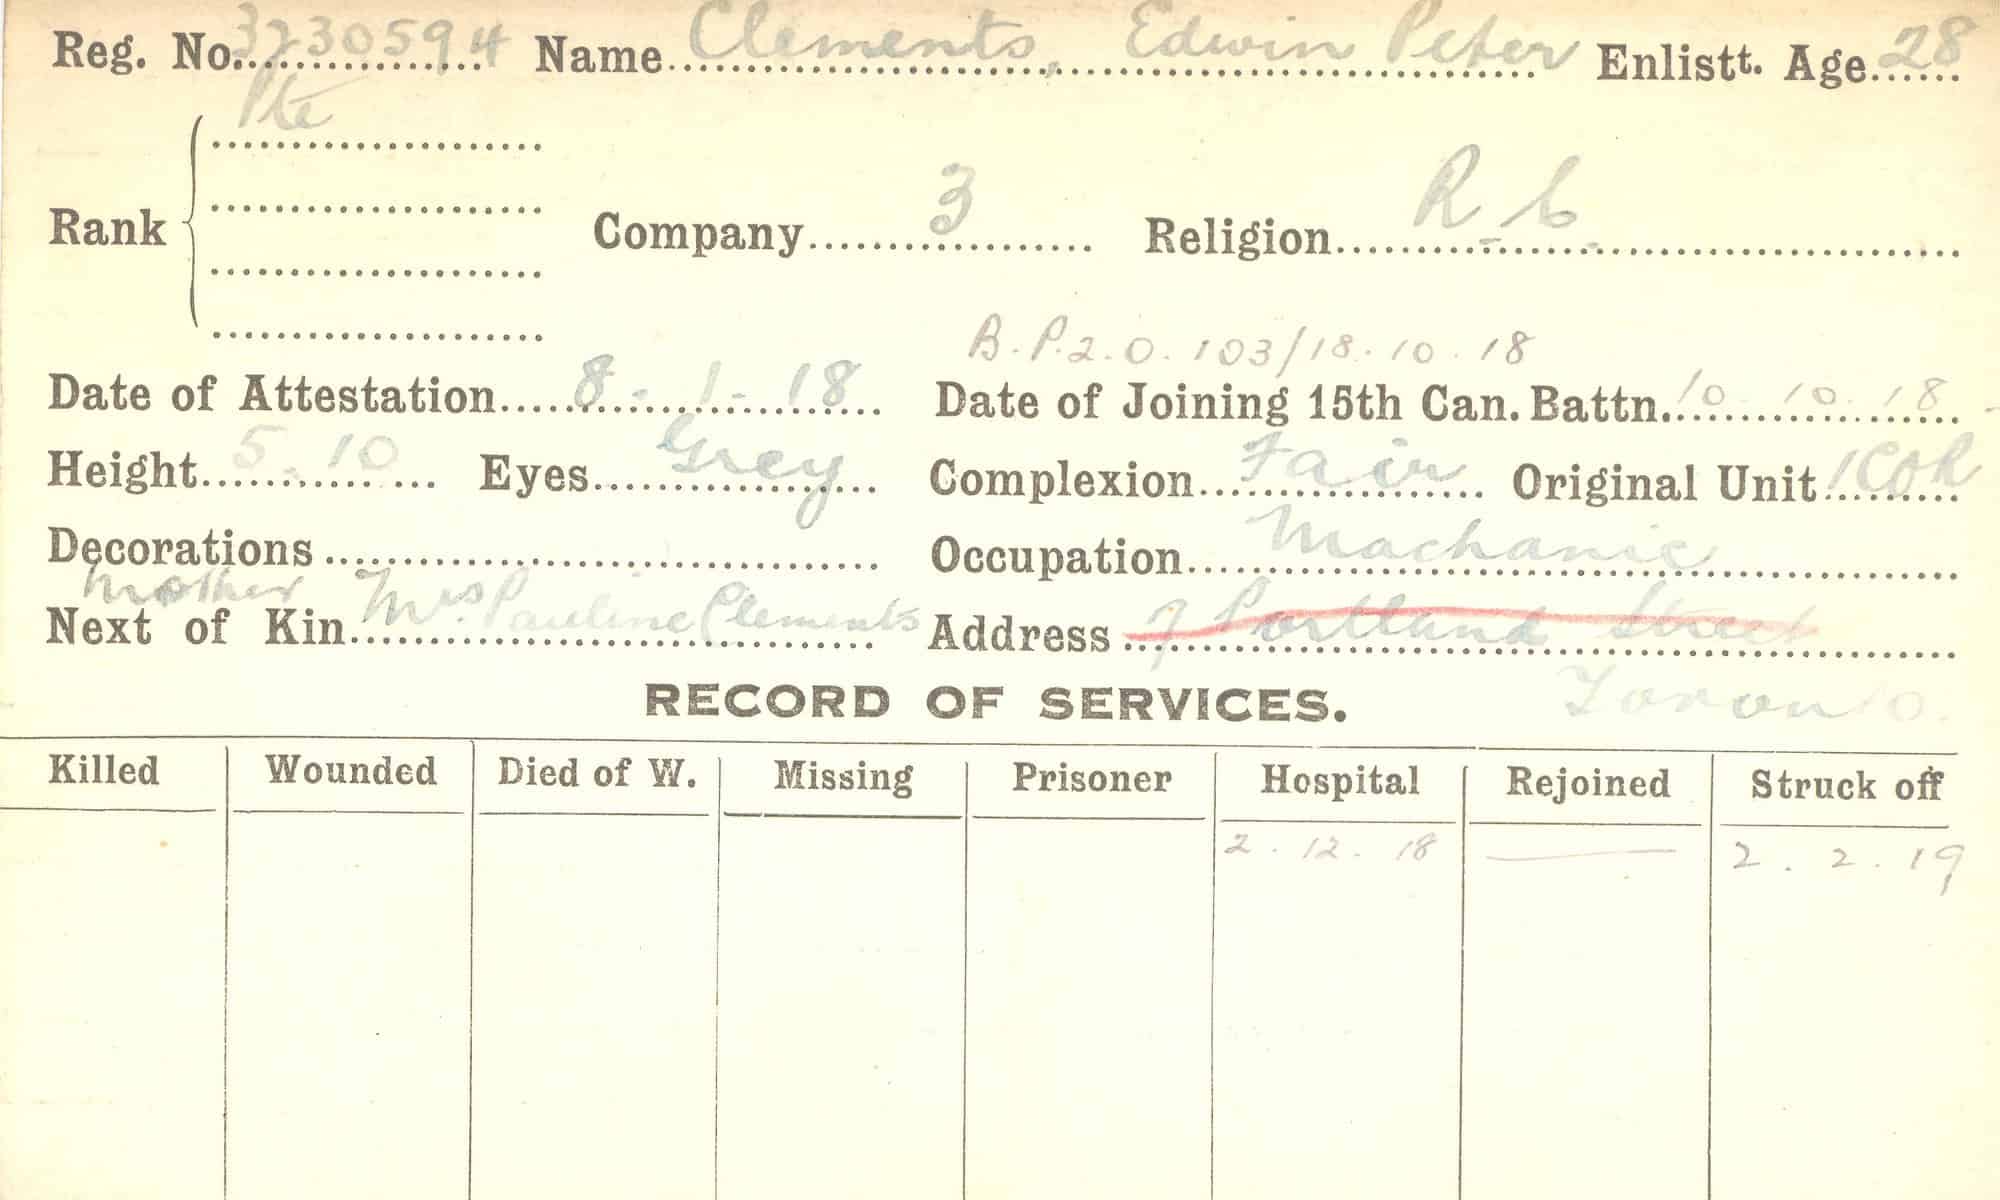 Reg. No. 3230594 Name Clements, Edwin Peter Enlistt. Age 28
Pte
Rank Company 3 Religion R.C.
B.P.2.O. 103/18.10.18
Date of Attestation 8-1-18 Date of Joining 15th Can. Battn. 10.10.18
Height 5.10 Eyes Grey Complexion Fair Original Unit 1COR
Decorations Occupation Machanic
mother
Next of Kin Mrs. Pauline Clements Address 7 Portland Street
Toronto.
RECORD OF SERVICES.
Killed Wounded Died of W. Missing Prisoner Hospital Rejoined Struck off
2.12.18 — 2.2.19